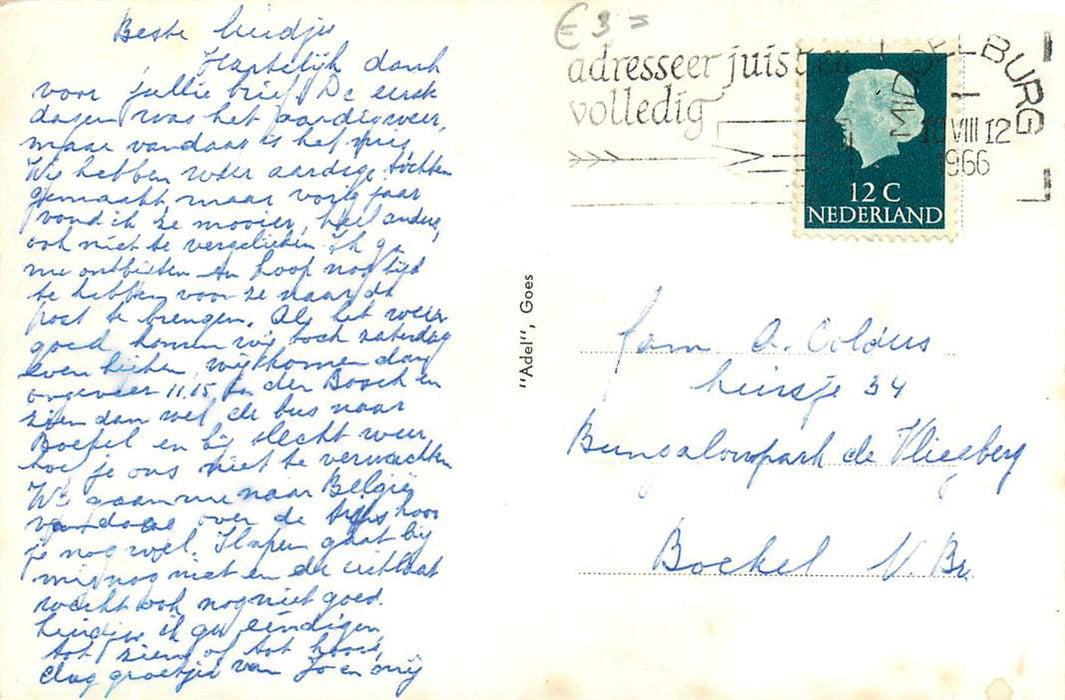 Beste luidjes
Hartelijk dank
voor jullie brief. De eerste
dagen was het aardig weer,
maar vandaag is het
We hebben weer aardige tochten
gemaakt, maar vorig jaar
vond ik ze mooier, heel anders,
ook niet te vergelijken. Ik ga
nu ontbijten en hoop nog tijd
te hebben voor ze naar de
post te brengen. Als het weer
goed komen wij toch zaterdag
even kijken, wij komen dan
ongeveer 11.15 in den Bosch en
zien dan wel de bus naar
Boekel en bij slecht weer
hoef je ons niet te verwachten
We gaan nu naar België
vandaag over de hoor
je nog wel. Slapen gaat bij
mij nog niet en de uitlaat
werkt ook nog niet goed.
luidjes ik ga eindigen,
tot ziens of tot hoors,
dag groetjes van Jo en mij
€ 3 =
adresseer juist en
volledig
MIDDELBURG
VIII 12
1966
12 C
NEDERLAND
"Adel", Goes
Fam A. Coldus
huisje 34
Bungalowpark de Vliegberg
Boekel N. Br.